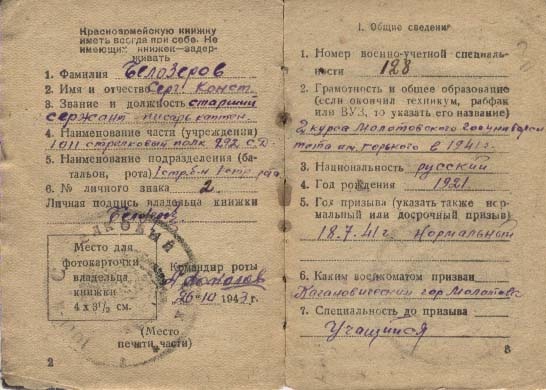 Красноармейскую книжку
иметь всегда при себе. Не
имеющих книжек—задер-
живать
1. Фамилия Белозеров
2. Имя и отчество Серг. Конст.
3. Звание и должность старший
сержант писарь каптен.
4. Наименование части (учреждения)
1011 стрелковый полк 292 С.Д.
5. Наименование подразделения (ба-
тальон, рота) 1 стр. б-н 1 стр.
6. № личного знака 2
Личная подпись владельца книжки
Место для
фотокарточки
владельца
книжки
4 х 3½ см.
Командир роты
26-10 1943 г.
(Место
печати части)
2
I. Общие сведения
1. Номер военно-учетной специаль-
ности 128
2. Грамотность и общее образование
(если окончил техникум, рабфак
или ВУЗ, то указать его название)
2 курса Молотовского госуниверси
тета им. Горького в 1941 г.
3. Национальность русский
4. Год рождения 1921
5. Год призыва (указать также нор-
мальный или досрочный призыв)
18.7.41 г. Нормальный
6. Каким военкоматом призван
Кагановическим гор. Молотов
7. Специальность до призыва
Учащийся
3